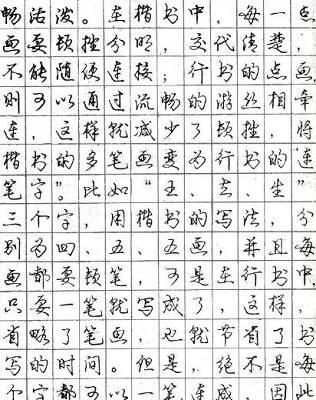 畅活泼。在楷书中，每一点
画要顿挫分明，交代清楚，
不能随便连接；行书的点画
则可以通过流畅的游丝相牵
连，这样就减少了顿挫，将
楷书的多笔画变为行书的“连
笔字”。比如“王、去、生”
三个字，用楷书的写法，分
别为四、五、五画，并且每
画都要顿笔，可是在行书中，
只要一笔就写成了，这样，
省略了笔画，也就节省了书
写的时间。但是，绝不是每
个字都可以一笔连成，因此